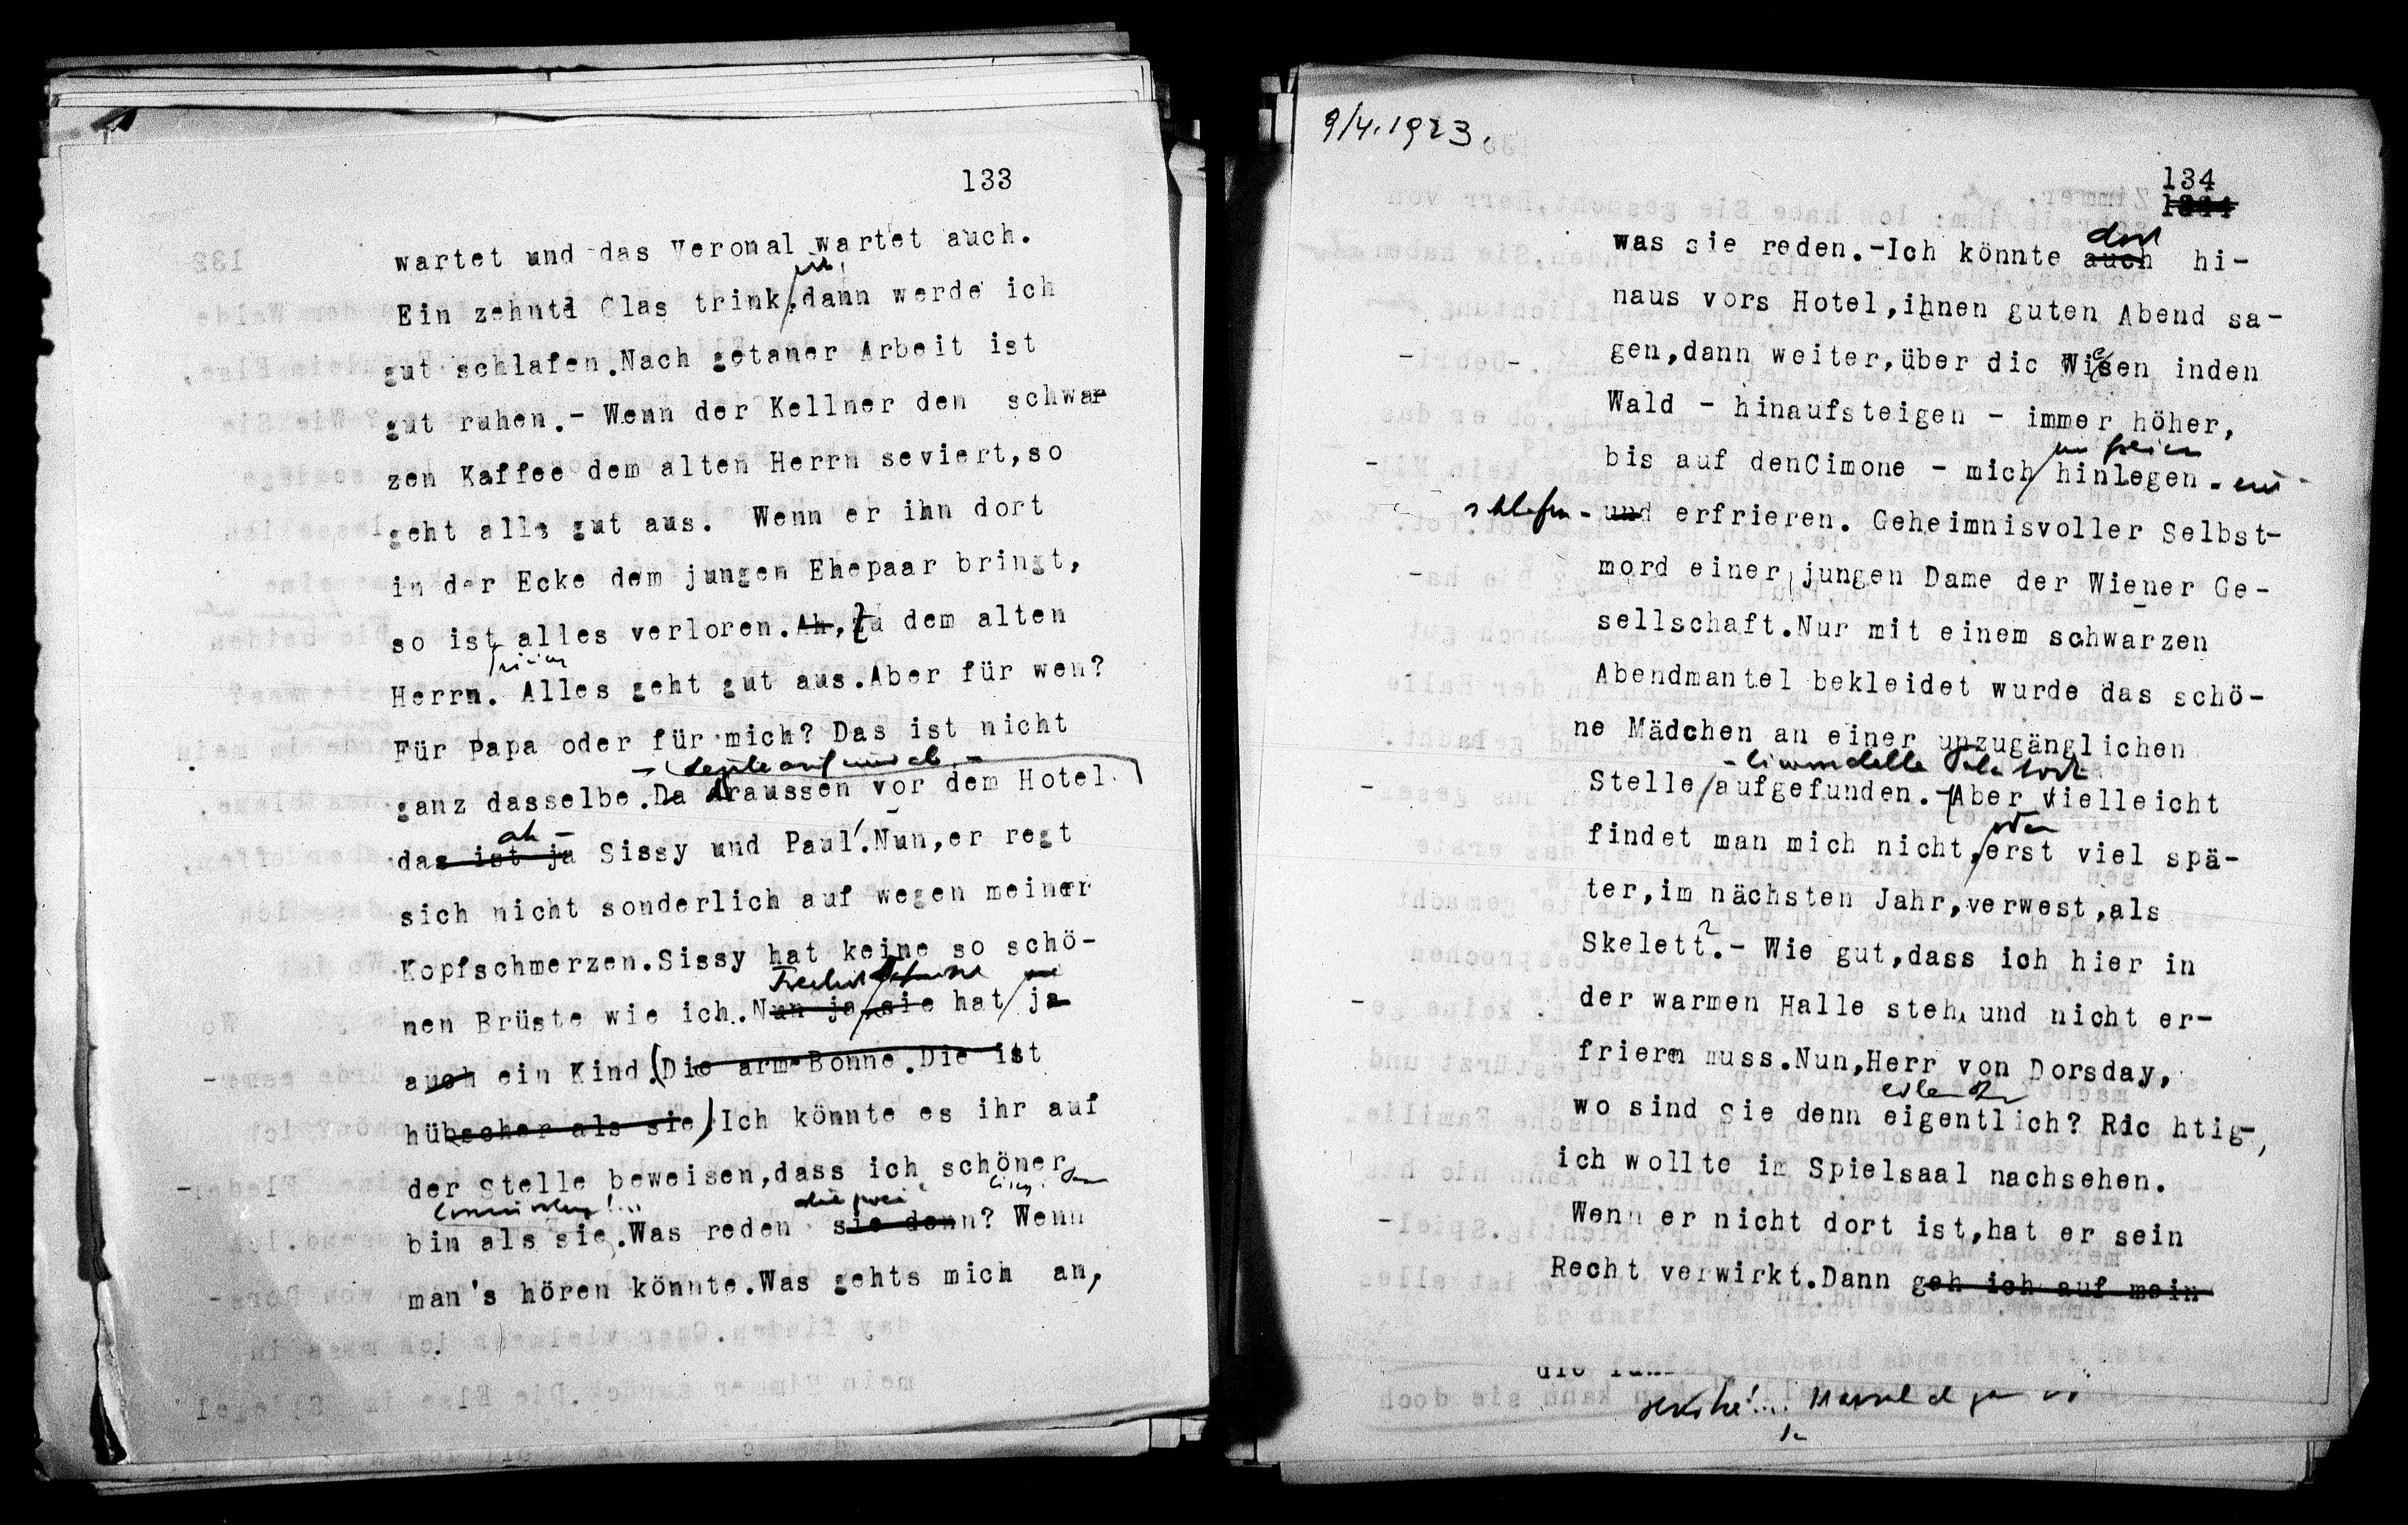 133
wartet und das Veronal wartet auch.
Ein zehntel Glas trink ich, dann werde ich
gut schlafen.Nach getaner Arbeit ist
gut ruhen.- Wenn der Kellner den schwar
zen Kaffee dem alten Herrn seviert,so
geht alls gut aus. Wenn er ihn dort
in der Ecke dem jungen Ehepaar bringt,
so ist alles verloren.Ah, zu dem alten
Herrn. Alles geht gut aus.Aber für wen?
Für Papa oder für mich? Das ist nicht
auf und ab -
ganz dasselbe.Da draussen vor dem Hotel
ah -
das ist ja Sissy und Paul! Nun,er regt
sich nicht sonderlich auf wegen meiner
Kopfschmerzen.Sissy hat keine so schö-
nen Brüste wie ich.Nun ja, sie hat ja
auch ein Kind.(Die arme Bonne.Die ist
hübscher als sie) Ich könnte es ihr auf
der Stelle beweisen,dass ich schöner
die zwei
bin als sie.Was reden sie denn? Wenn
man's hören könnte.Was gehts mich an,
9/4.1923.
134
1334
dort
was sie reden.-Ich könnte auch hi-
naus vors Hotel,ihnen guten Abend sa-
gen,dann weiter,über die Wiesen inden
Wald - hinaufsteigen - immer höher,
im freien
bis auf denCimone - mich hinlegen - ein
schlafen - und erfrieren. Geheimnisvoller Selbst-
mord einer jungen Dame der Wiener Ge-
sellschaft.Nur mit einem schwarzen
Abendmantel bekleidet wurde das schö-
ne Mädchen an einer unzugänglichen
- Cimone della Pala
Stelle aufgefunden.-Aber vielleicht
oder
findet man mich nicht, erst viel spä-
ter,im nächsten Jahr,verwest,als
Skelett?- Wie gut,dass ich hier in
der warmen Halle steh und nicht er-
frieren muss.Nun,Herr von Dorsday,
wo sind Sie denn eigentlich? Ric htig-,
ich wollte im Spielsaal nachsehen.
Wenn er nicht dort ist,hat er sein
Recht verwirkt.Dann geh ich auf mein